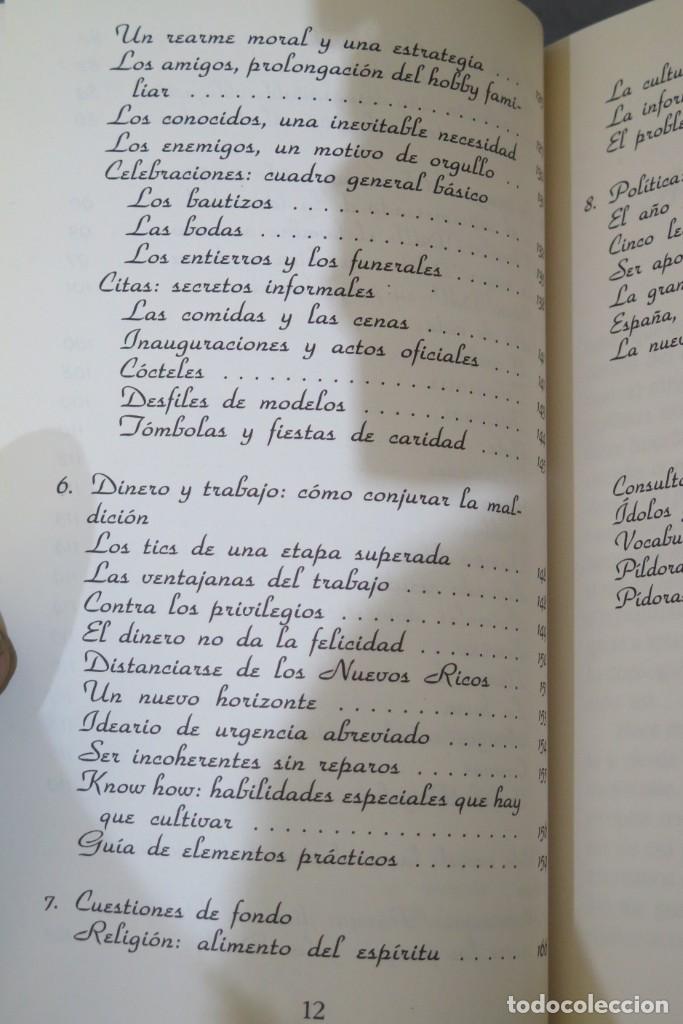 Un rearme moral y una estrategia . . .
Los amigos, prolongación del hobby fami-
liar . . . . . . . . . . . . . . . . . . . . . .
Los conocidos, una inevitable necesidad
Los enemigos, un motivo de orgullo . .
Celebraciones: cuadro general básico
Los bautizos . . . . . . . . . . . . . .
Las bodas . . . . . . . . . . . . . . . .
Los entierros y los funerales . . . . .
Citas: secretos informales
Las comidas y las cenas . . . . . . .
Inauguraciones y actos oficiales . . .
Cócteles . . . . . . . . . . . . . . . . . .
Desfiles de modelos . . . . . . . . . . 143
Tómbolas y fiestas de caridad . . . . 144
145
6. Dinero y trabajo: cómo conjurar la mal-
dición
Los tics de una etapa superada . . . . .
Las ventajanas del trabajo . . . . . . . .
Contra los privilegios . . . . . . . . . . . .
El dinero no da la felicidad . . . . . . .
Distanciarse de los Nuevos Ricos . .
Un nuevo horizonte . . . . . . . . . . . . 153
Ideario de urgencia abreviado . . . . . . 154
Ser incoherentes sin reparos . . . . . . . 155
Know how: habilidades especiales que hay
que cultivar . . . . . . . . . . . . . . . . .
Guía de elementos prácticos . . . . . . . .
7. Cuestiones de fondo
Religión: alimento del espíritu . . . . . 160
12
La cultu
La infor
El proble
8. Política:
El año
Cinco le
Ser apo
La gran
España,
La nuev
Consulto
Ídolos
Vocabu
Píldora
Pídoras
todocoleccion